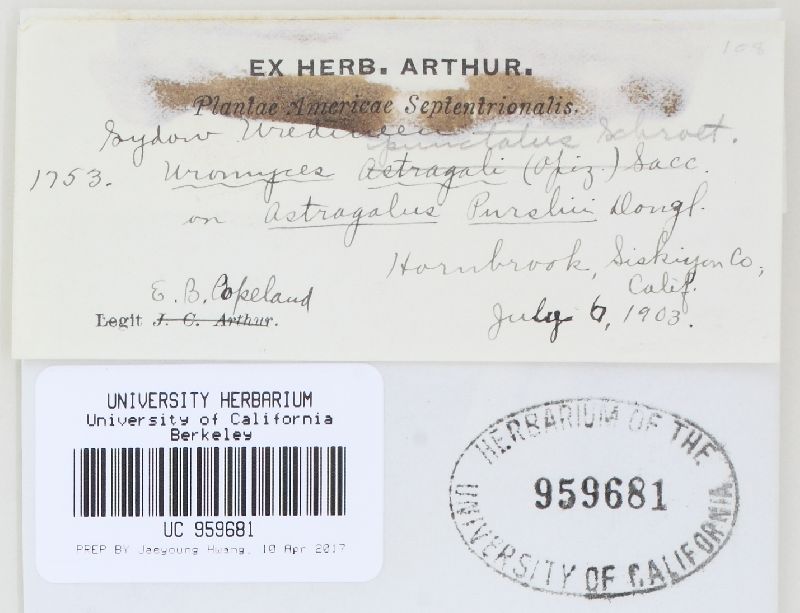 108
EX HERB. ARTHUR.
Plantae Americae Septentrionalis.
Sydow Uredineen
punctatus Schroet.
1753. Uromyces Astragali (Opiz.) Sacc.
on Astragalus Purshii Dougl.
Hornbrook, Siskiyou Co,
Calif.
E. B. Copeland
Legit J. C. Arthur.
July 6, 1903.
UNIVERSITY HERBARIUM
University of California
Berkeley
UC 959681
PREP BY Jaeyoung Hwang, 10 Apr 2017
HERBARIUM OF THE
959681
UNIVERSITY OF CALIFORNIA